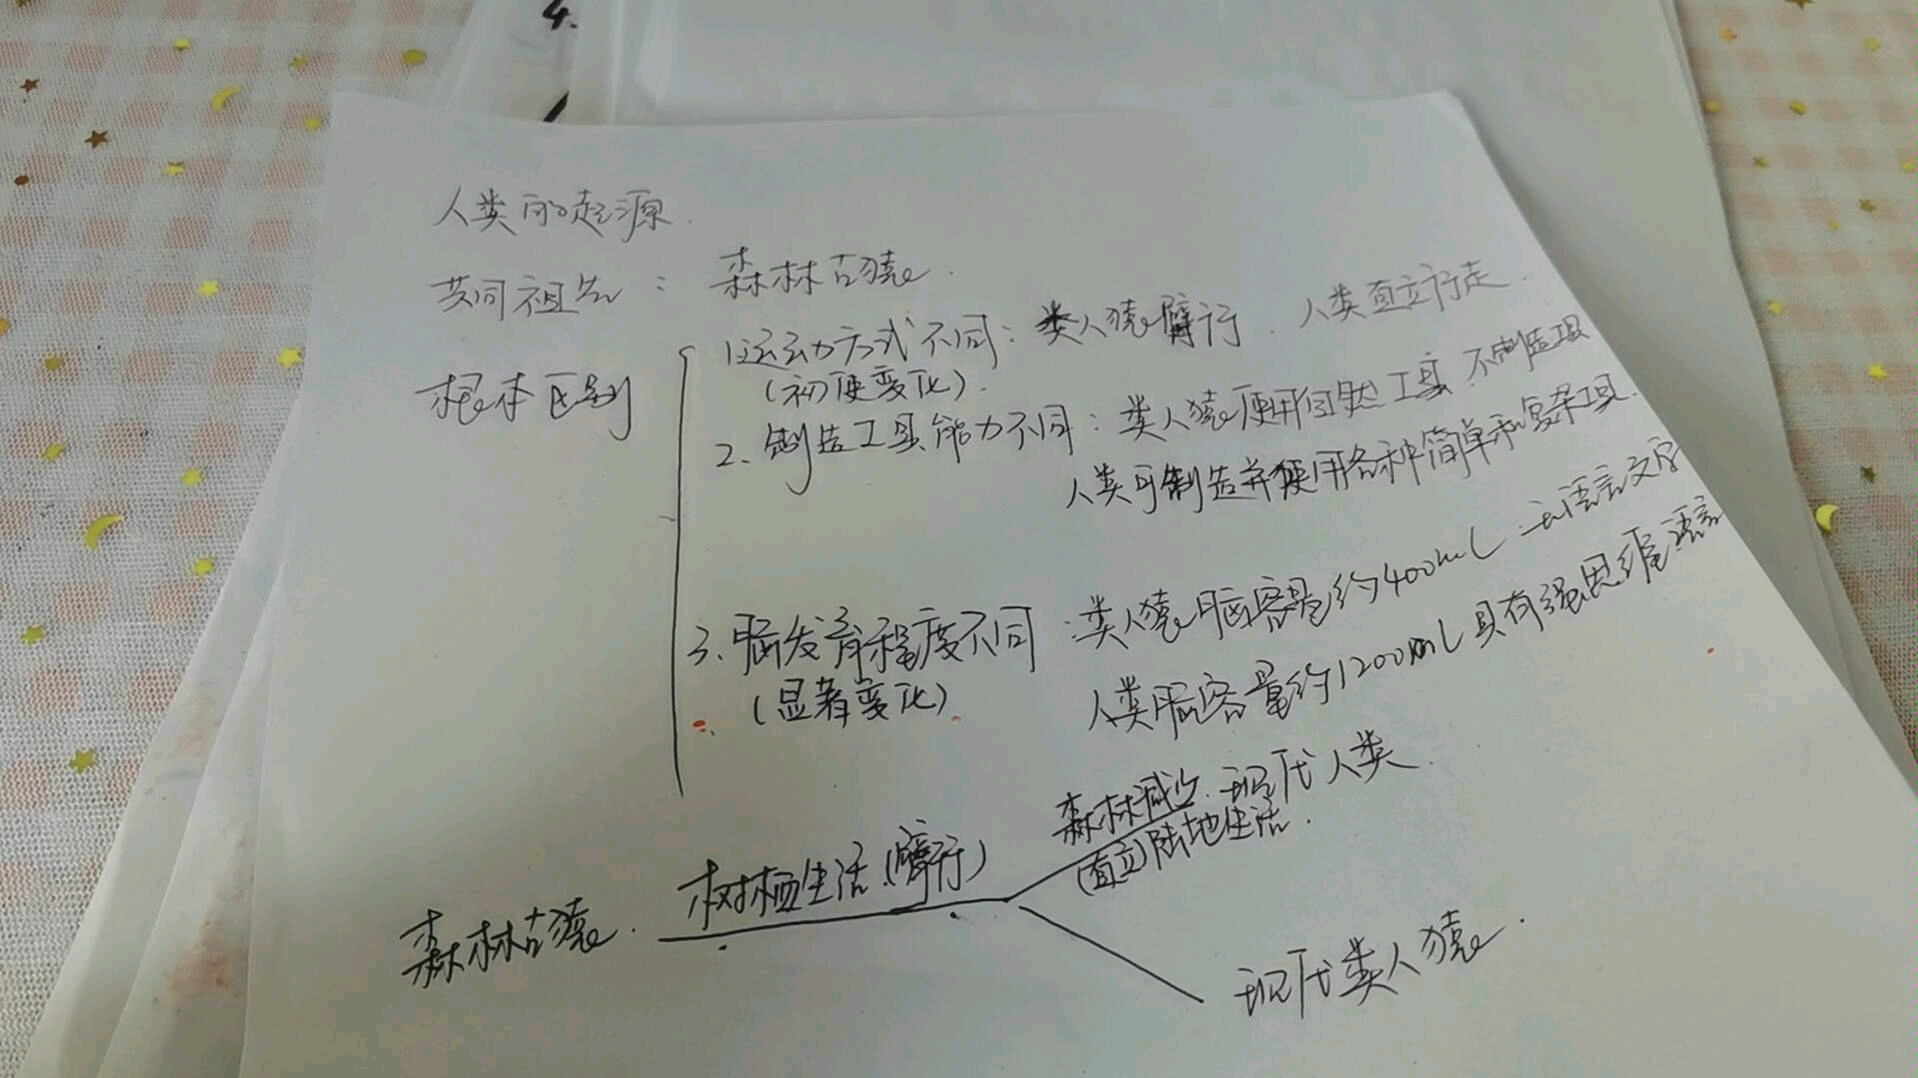 4.
人类的起源.
共同祖先: 森林古猿.
根本区别
1.运动方式不同: 类人猿臂行. 人类直立行走.
(初使变化).
2、制造工具能力不同: 类人猿使用自然工具.不制造工具
人类可制造并使用各种简单和复杂工具.
3、脑发育程度不同 :类人猿脑容量约400mL.无语言文字
(显著变化)
人类脑容量约1200mL具有强思维语言
森林减少. 现代人类
(直立)陆地生活.
森林古猿. 树栖生活.(臂行)
现代类人猿.